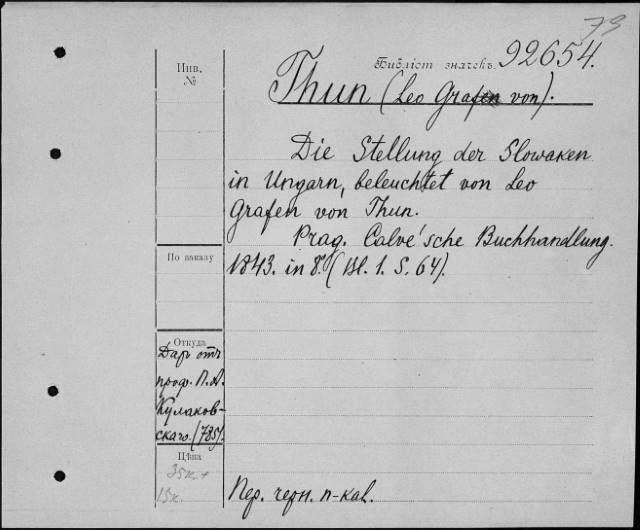 73
Инв.
№
Библіот. значекъ. 92654.
Thun (Leo Grafen von).
Die Stellung der Slowaken
in Ungarn, beleuchtet von Leo
Grafen von Thun.
Prag. Calvé'sche Buchhandlung.
1843. in 8°. (Bl. 1. S. 64).
По заказу
Откуда
Даръ отъ
проф. П. А.
Кулаков-
скаго. (785).
Цѣна
35к +
15к.
Пер. черн. п-каl.